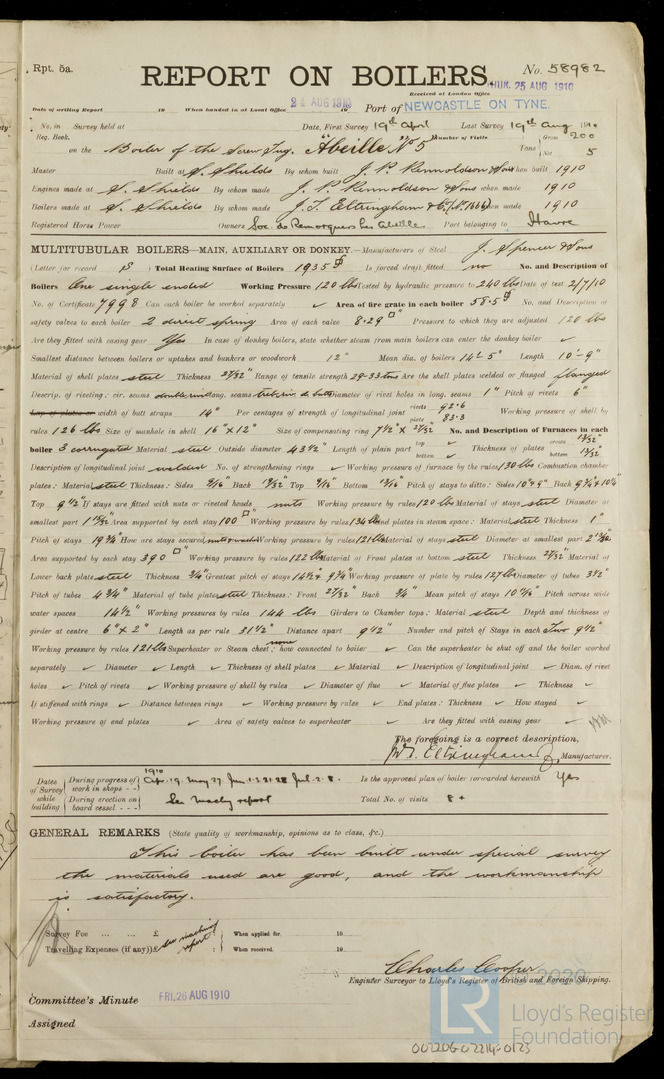 Rpt. 5a.
REPORT ON BOILERS.
No. 58982
THUR. 25 AUG 1910
Received at London Office
Date of writing Report 19 When handed in at Local Office 24 AUG 1910 19 Port of NEWCASTLE ON TYNE.
No. in Survey held at Date, First Survey 19th April Last Survey 19th Aug 1910
Reg. Book. Number of Visits Gross 200
on the Boiler of the Screw Tug. "Abeille No 5" Tons Net 5
Master Built at S. Shields By whom built J. P. Rennoldson & Sons When built 1910
Engines made at S. Shields By whom made J. P. Rennoldson & Sons when made 1910
Boilers made at S. Shields By whom made J. T. Eltringham & Co. (No. 1666) when made 1910
Registered Horse Power Owners Soc. de Remorquers les Abeilles Port belonging to Havre
MULTITUBULAR BOILERS—MAIN, AUXILIARY OR DONKEY.—Manufacturers of Steel J. Spencer & Sons
(Letter for record S ) Total Heating Surface of Boilers 1935 Is forced draft fitted no No. and Description of
Boilers One single ended Working Pressure 120 lbs Tested by hydraulic pressure to 240 lbs Date of test 2/7/10
No. of Certificate 7998 Can each boiler be worked separately ✓ Area of fire grate in each boiler 58.5 No. and Description of
safety valves to each boiler 2 direct spring Area of each valve 8.29 Pressure to which they are adjusted 120 lbs
Are they fitted with easing gear Yes In case of donkey boilers, state whether steam from main boilers can enter the donkey boiler ✓
Smallest distance between boilers or uptakes and bunkers or woodwork 12" Mean dia. of boilers 14'-5" Length 10'-9"
Material of shell plates steel Thickness 27/32" Range of tensile strength 29-33 tons Are the shell plates welded or flanged flanged
Descrip. of riveting: cir. seams double riv. long. seams treb. riv. d. butt Diameter of rivet holes in long. seams 1" Pitch of rivets 6"
Lap of plates or width of butt straps 14" Per centages of strength of longitudinal joint rivets 92.6 plate 83.3 Working pressure of shell by
rules 126 lbs Size of manhole in shell 16" x 12" Size of compensating ring 7½" x 27/32" No. and Description of Furnaces in each
boiler 3 corrugated Material steel Outside diameter 43½" Length of plain part top ✓ bottom ✓ Thickness of plates crown 13/32" bottom 13/32"
Description of longitudinal joint welded No. of strengthening rings ✓ Working pressure of furnace by the rules 130 lbs Combustion chamber
plates: Material steel Thickness: Sides 9/16" Back 19/32" Top 9/16" Bottom 13/16" Pitch of stays to ditto: Sides 10" x 9" Back 9¾" x 10¼"
Top 9½" If stays are fitted with nuts or riveted heads nuts Working pressure by rules 120 lbs Material of stays steel Diameter at
smallest part 1 15/32" Area supported by each stay 100 Working pressure by rules 134 lbs End plates in steam space: Material steel Thickness 1"
Pitch of stays 19¾" How are stays secured Working pressure by rules 121 lbs Material of stays steel Diameter at smallest part
Area supported by each stay 390 Working pressure by rules 122 lbs Material of Front plates at bottom steel Thickness 27/32" Material of
Lower back plate steel Thickness ¾" Greatest pitch of stays 14½" x 9¾" Working pressure of plate by rules 127 lbs Diameter of tubes 3½"
Pitch of tubes 4¾" Material of tube plates steel Thickness: Front 27/32" Back ¾" Mean pitch of stays Pitch across wide
water spaces 14½" Working pressures by rules 144 lbs Girders to Chamber tops: Material steel Depth and thickness of
girder at centre 6" x 2" Length as per rule 31½" Distance apart 9½" Number and pitch of Stays in each Two 9½"
Working pressure by rules 121 lbs Superheater or Steam chest; none how connected to boiler ✓ Can the superheater be shut off and the boiler worked
separately ✓ Diameter ✓ Length ✓ Thickness of shell plates ✓ Material ✓ Description of longitudinal joint ✓ Diam. of rivet
holes ✓ Pitch of rivets ✓ Working pressure of shell by rules ✓ Diameter of flue ✓ Material of flue plates ✓ Thickness ✓
If stiffened with rings ✓ Distance between rings ✓ Working pressure by rules ✓ End plates: Thickness ✓ How stayed ✓
Working pressure of end plates ✓ Area of safety valves to superheater ✓ Are they fitted with easing gear ✓
The foregoing is a correct description,
Eltringham Manufacturer.
Dates of Survey while building
During progress of work in shops - - 1910 Apr. 19. May 27. Jun. 1. 2. 21. 28 Jul. 2. 8. Is the approved plan of boiler forwarded herewith Yes
During erection on board vessel - - - See Machy report Total No. of visits 8 +
GENERAL REMARKS (State quality of workmanship, opinions as to class, &c.)
This boiler has been built under special survey
the materials used are good, and the workmanship
is satisfactory.
Survey Fee ... ... £ See machinery report When applied for, 19
Travelling Expenses (if any) £ When received, 19
Charles Cooper
Engineer Surveyor to Lloyd's Register of British and Foreign Shipping.
Committee's Minute FRI. 26 AUG 1910
Assigned
© 2020
LR
Lloyd's Register
Foundation
002206-002214-0123